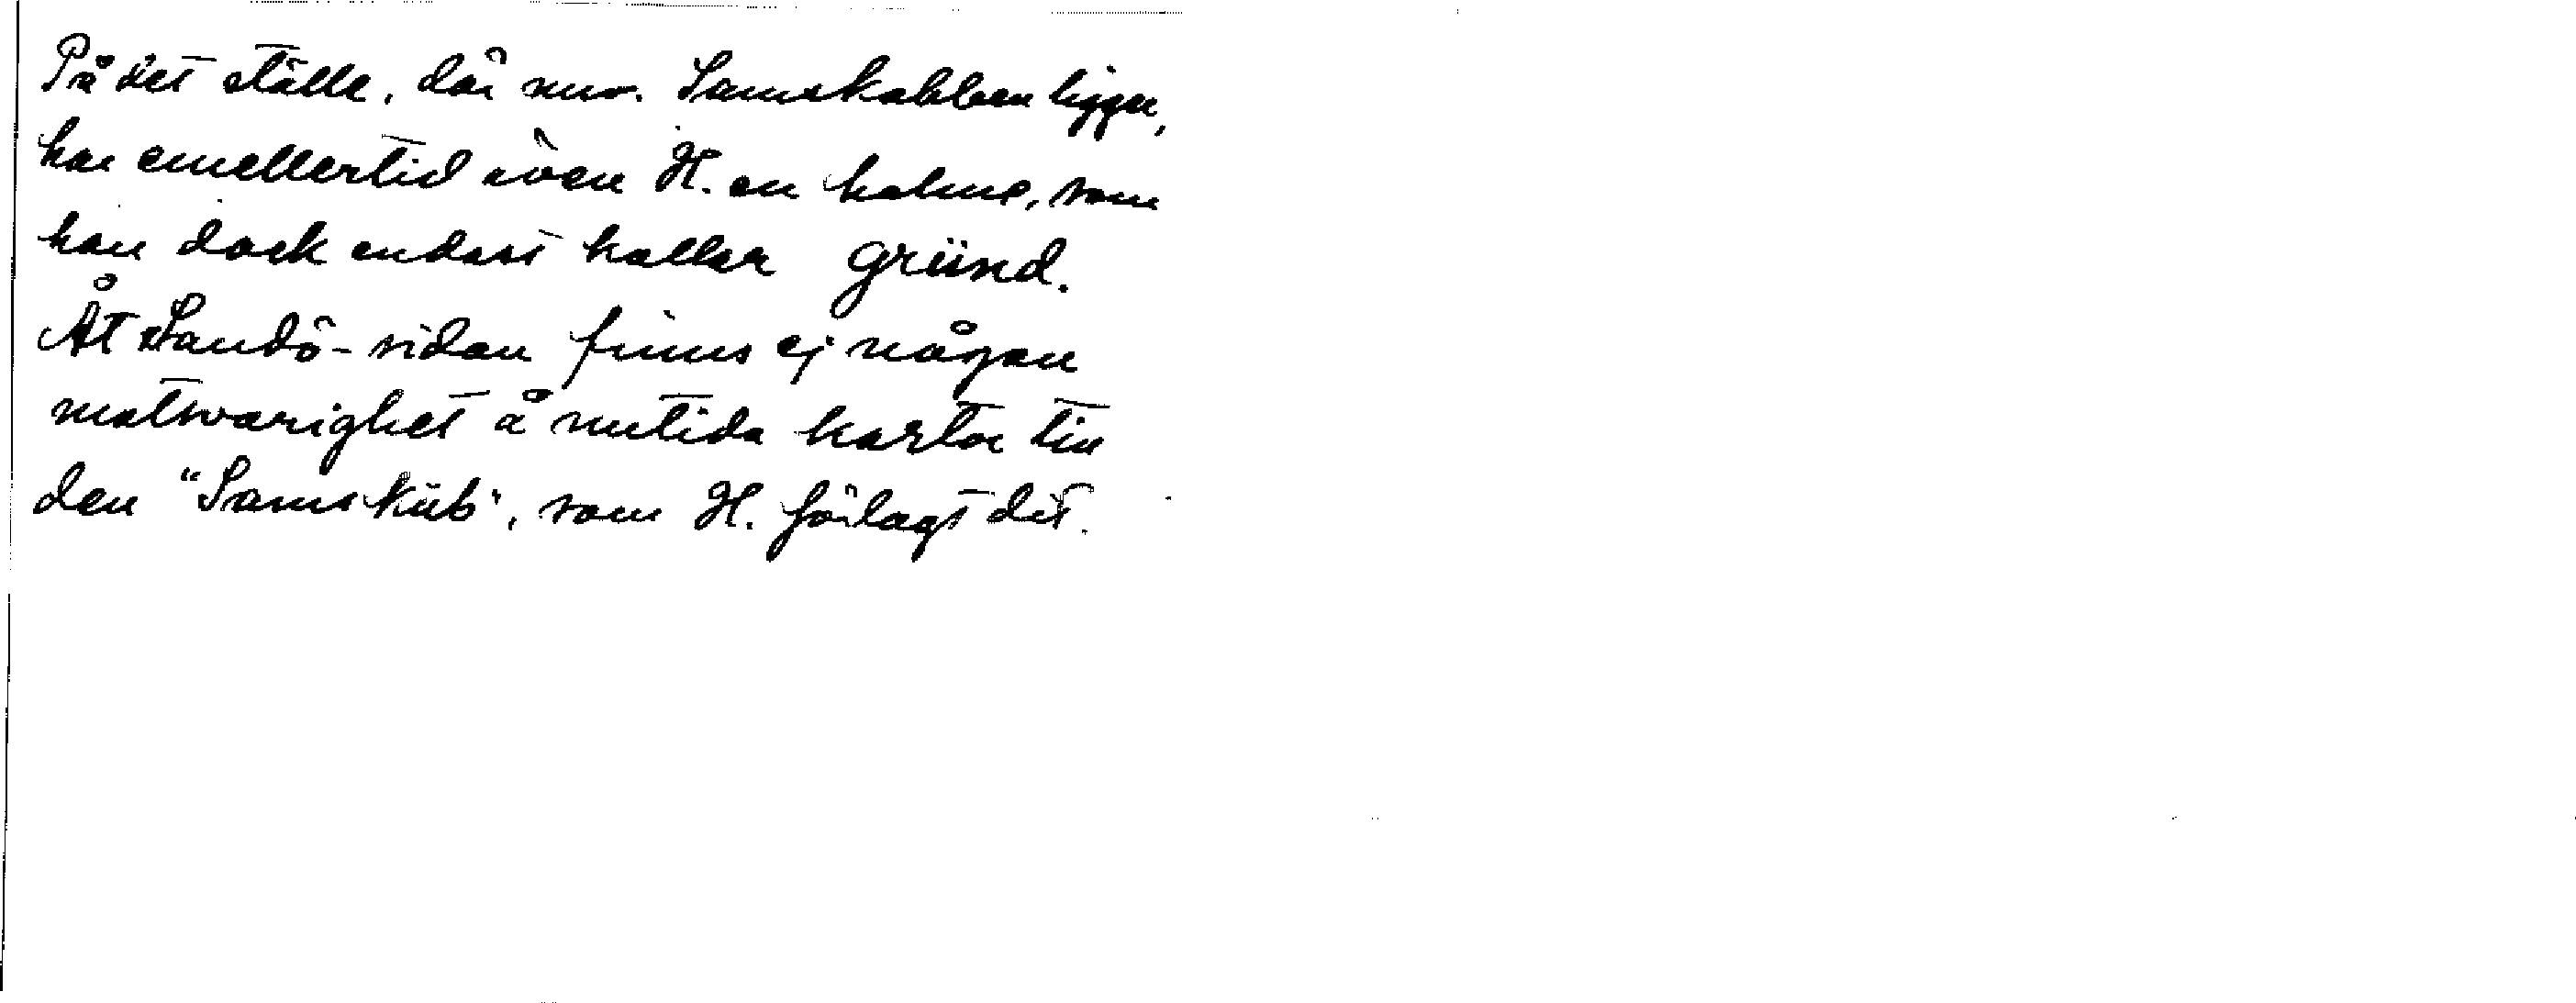 På det ställe, där nuv. Samskobben ligger,
har emellertid även H. en holme, som
han dock endast kallar gründ.
Åt Sandö-sidan finns ej någon
motsvarighet å nutida kartor till
den "Samskub", som H. förlagt dit.